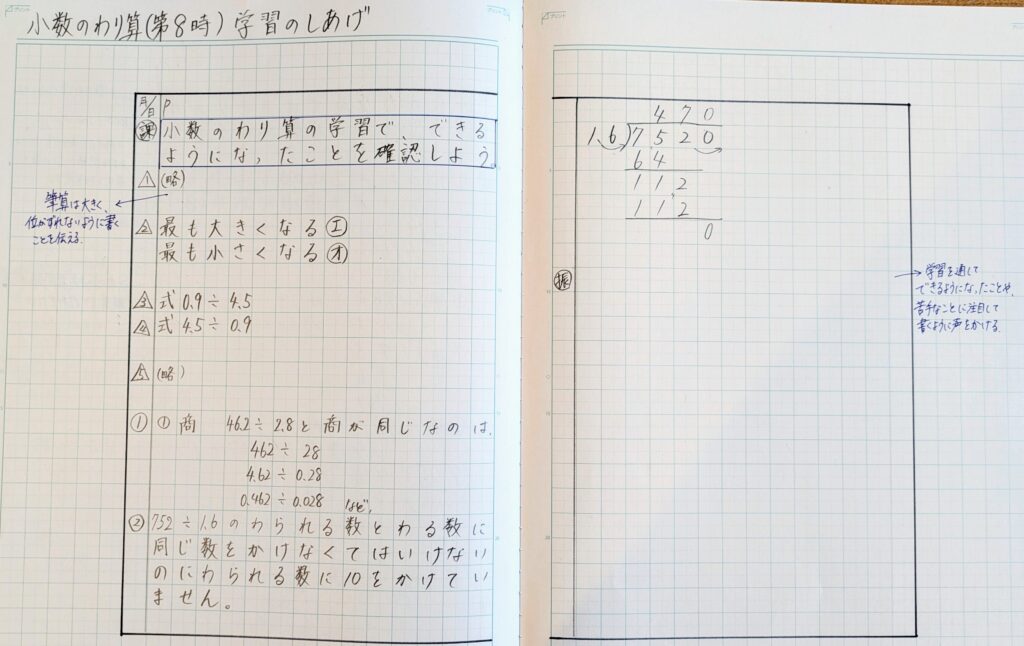 小数のわり算(第8時)学習のしあげ
月/日 P
課 小数のわり算の学習で、できる
ようになったことを確認しよう
1 (略)
筆算は大きく、
位がずれないように書く
ことを伝える。
2 最も大きくなる エ
最も小さくなる オ
3 式 0.9÷4.5
4 式 4.5÷0.9
5 (略)
① ① 商 46.2÷2.8と商が同じなのは、
462÷28
4.62÷0.28
0.462÷0.028 など。
② 752÷1.6のわられる数とわる数に
同じ数をかけなくてはいけない
のにわられる数に10をかけてい
ません。
470
1.6)7520
64
112
112
0
振
学習を通して
できるようになったことや、
苦手なことに注目して
書くように声をかける。